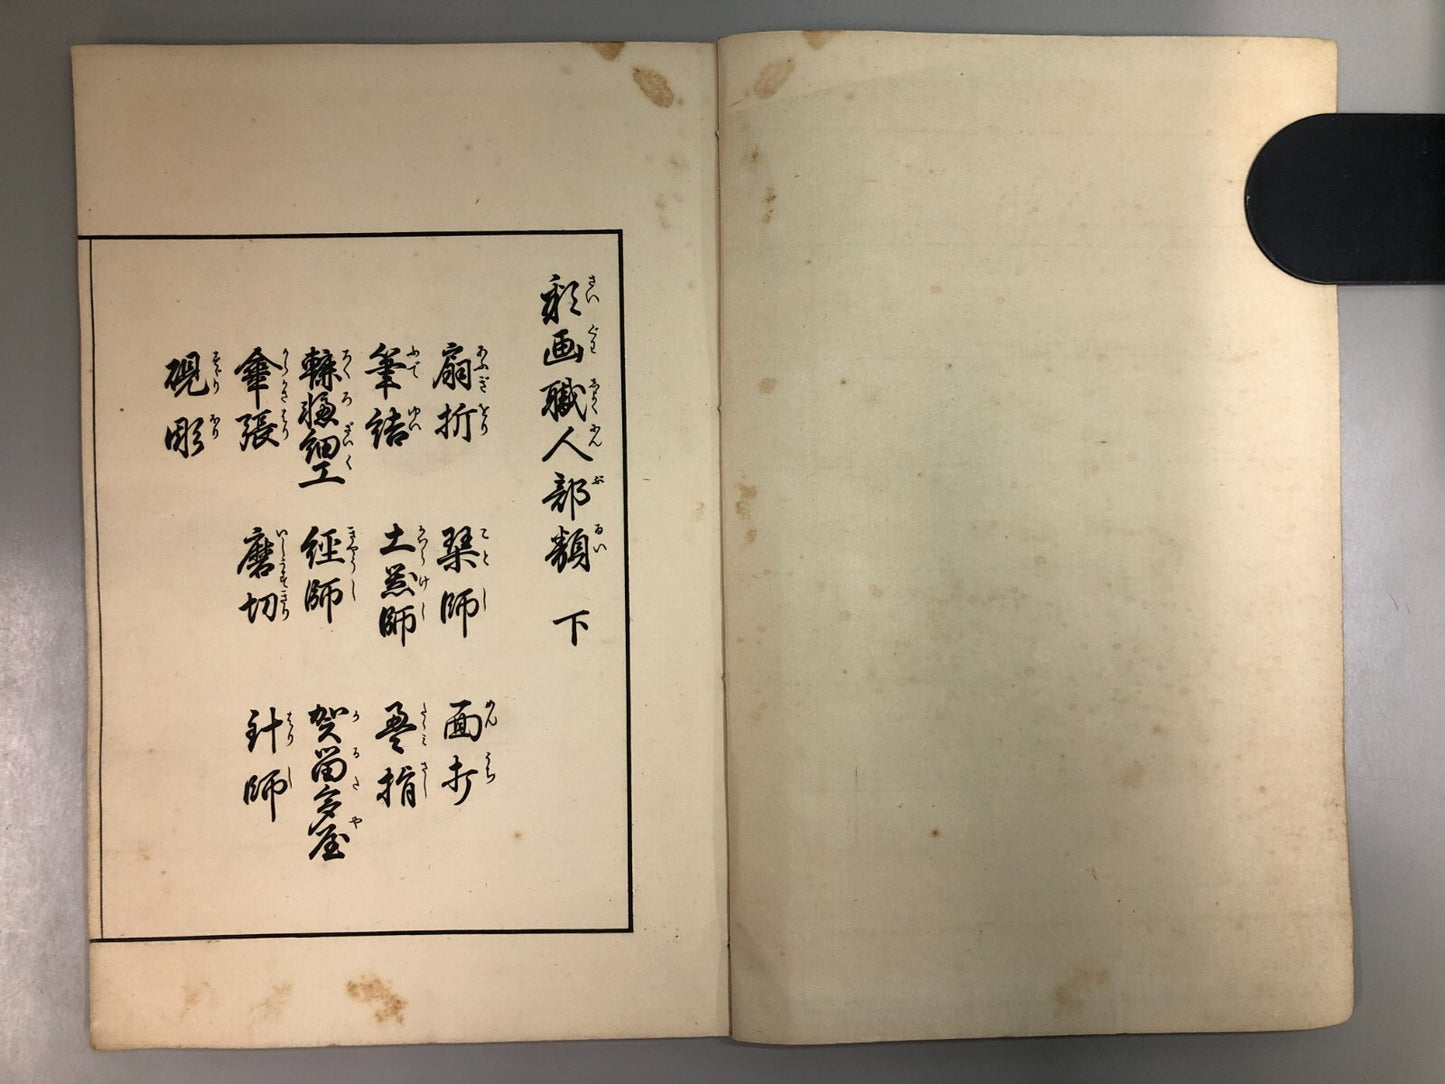 彩画職人部類 下
扇折 琴師 面打
筆結 土器師 畳指
轆轤細工 経師 賀留多屋
傘張 磨切 針師
硯彫